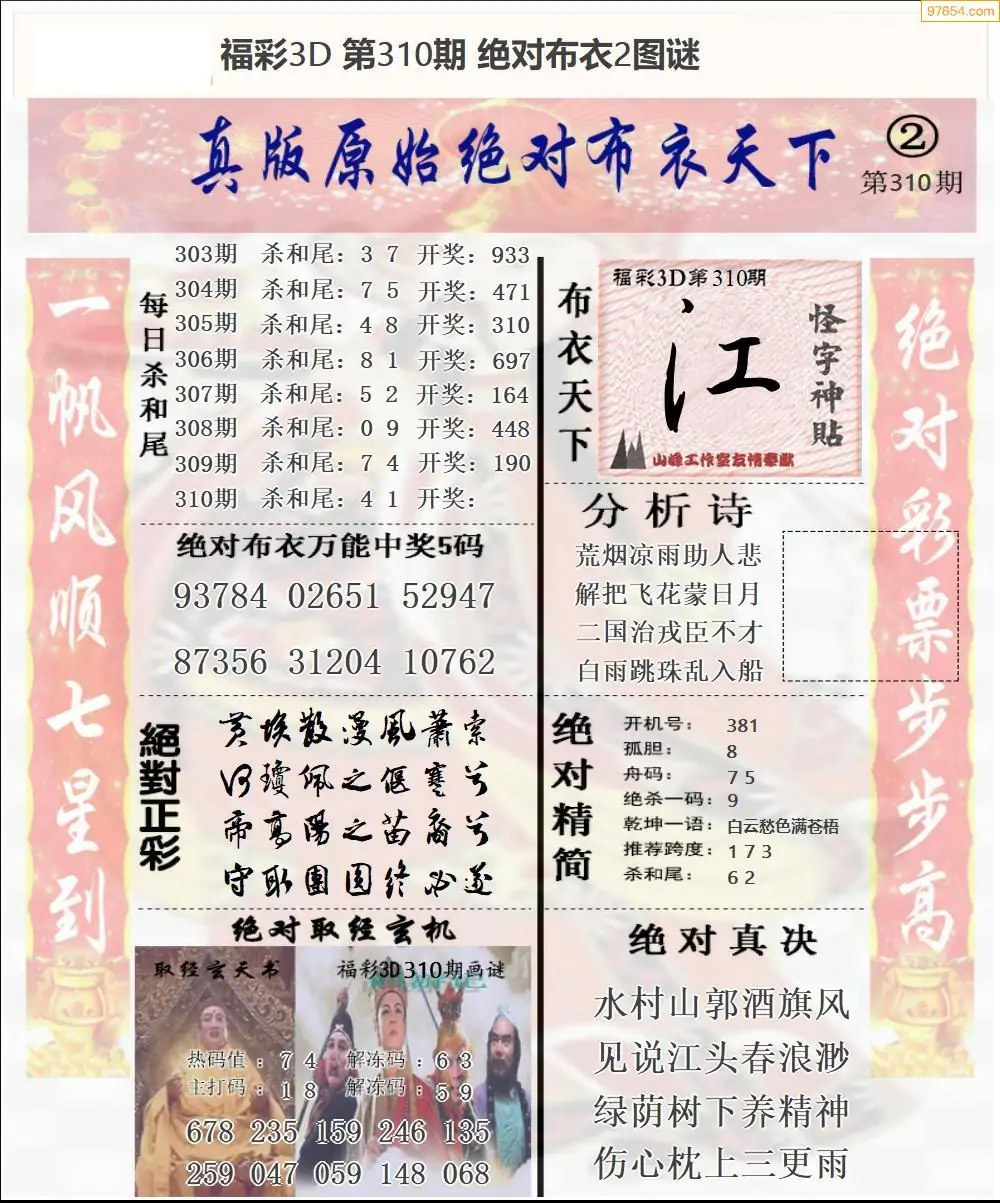 97654.com
福彩3D 第310期 绝对布衣2图谜
真版原始绝对布衣天下
②
第310期
一帆风顺七星到
每日杀和尾
303期 杀和尾：3 7 开奖：933
304期 杀和尾：7 5 开奖：471
305期 杀和尾：4 8 开奖：310
306期 杀和尾：8 1 开奖：697
307期 杀和尾：5 2 开奖：164
308期 杀和尾：0 9 开奖：448
309期 杀和尾：7 4 开奖：190
310期 杀和尾：4 1 开奖：
绝对布衣万能中奖5码
93784 02651 52947
87356 31204 10762
絕對正彩
黄埃散漫風蕭索
何瓊佩之偃蹇兮
帝高陽之苗裔兮
守取團圆终必遂
绝对取经玄机
取经玄天书
福彩3D310期画谜
热码值：7 4 解冻码：6 3
主打码：1 8 解冻码：5 9
678 235 159 246 135
259 047 059 148 068
布衣天下
福彩3D第310期
江
怪字神貼
山峰工作室友情奉献
分析诗
荒烟凉雨助人悲
解把飞花蒙日月
二国治戎臣不才
白雨跳珠乱入船
绝对精简
开机号：381
孤胆：8
舟码：7 5
绝杀一码：9
乾坤一语：白云愁色满苍梧
推荐跨度：1 7 3
杀和尾：6 2
绝对真决
水村山郭酒旗风
见说江头春浪渺
绿荫树下养精神
伤心枕上三更雨
绝对彩票步步高